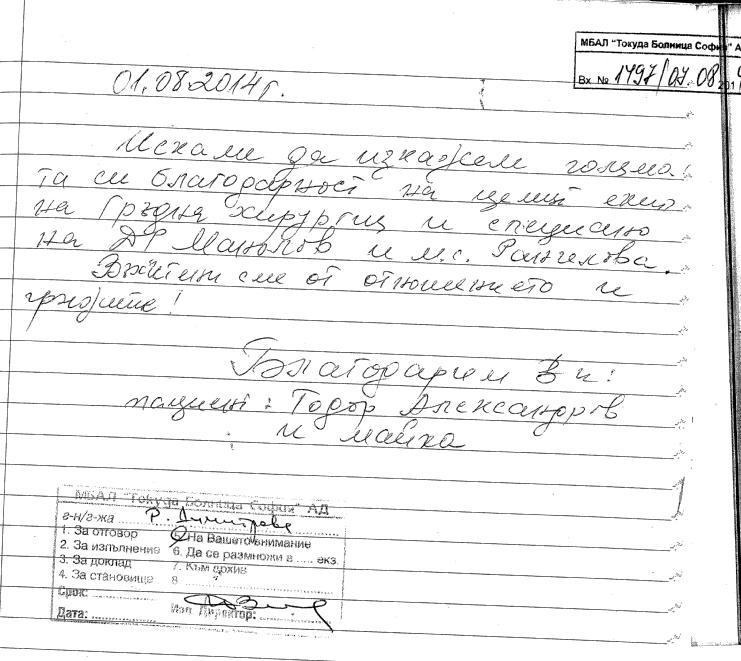 МБАЛ "Токуда Болница София" А
Вх № 1497/07.08 201
01.08.2014г.
Искаме да изкажем голяма
та си благодарност на целия екип
на Гръдна хирургия и специално
на Д-р Манолов и м.с. Рангелова.
Възхитени сме от отношението и
грижите!
Благодарим Ви!
пациент: Тодор Александров
и майка
МБАЛ "Токуда Болница София" АД
г-н/г-жа Р. Димитрова
1. За отговор 5. На Вашето внимание
2. За изпълнение 6. Да се размножи в ..... екз.
3. За доклад 7. Към архив
4. За становище 8
Срок:
Дата: Изп. Директор: